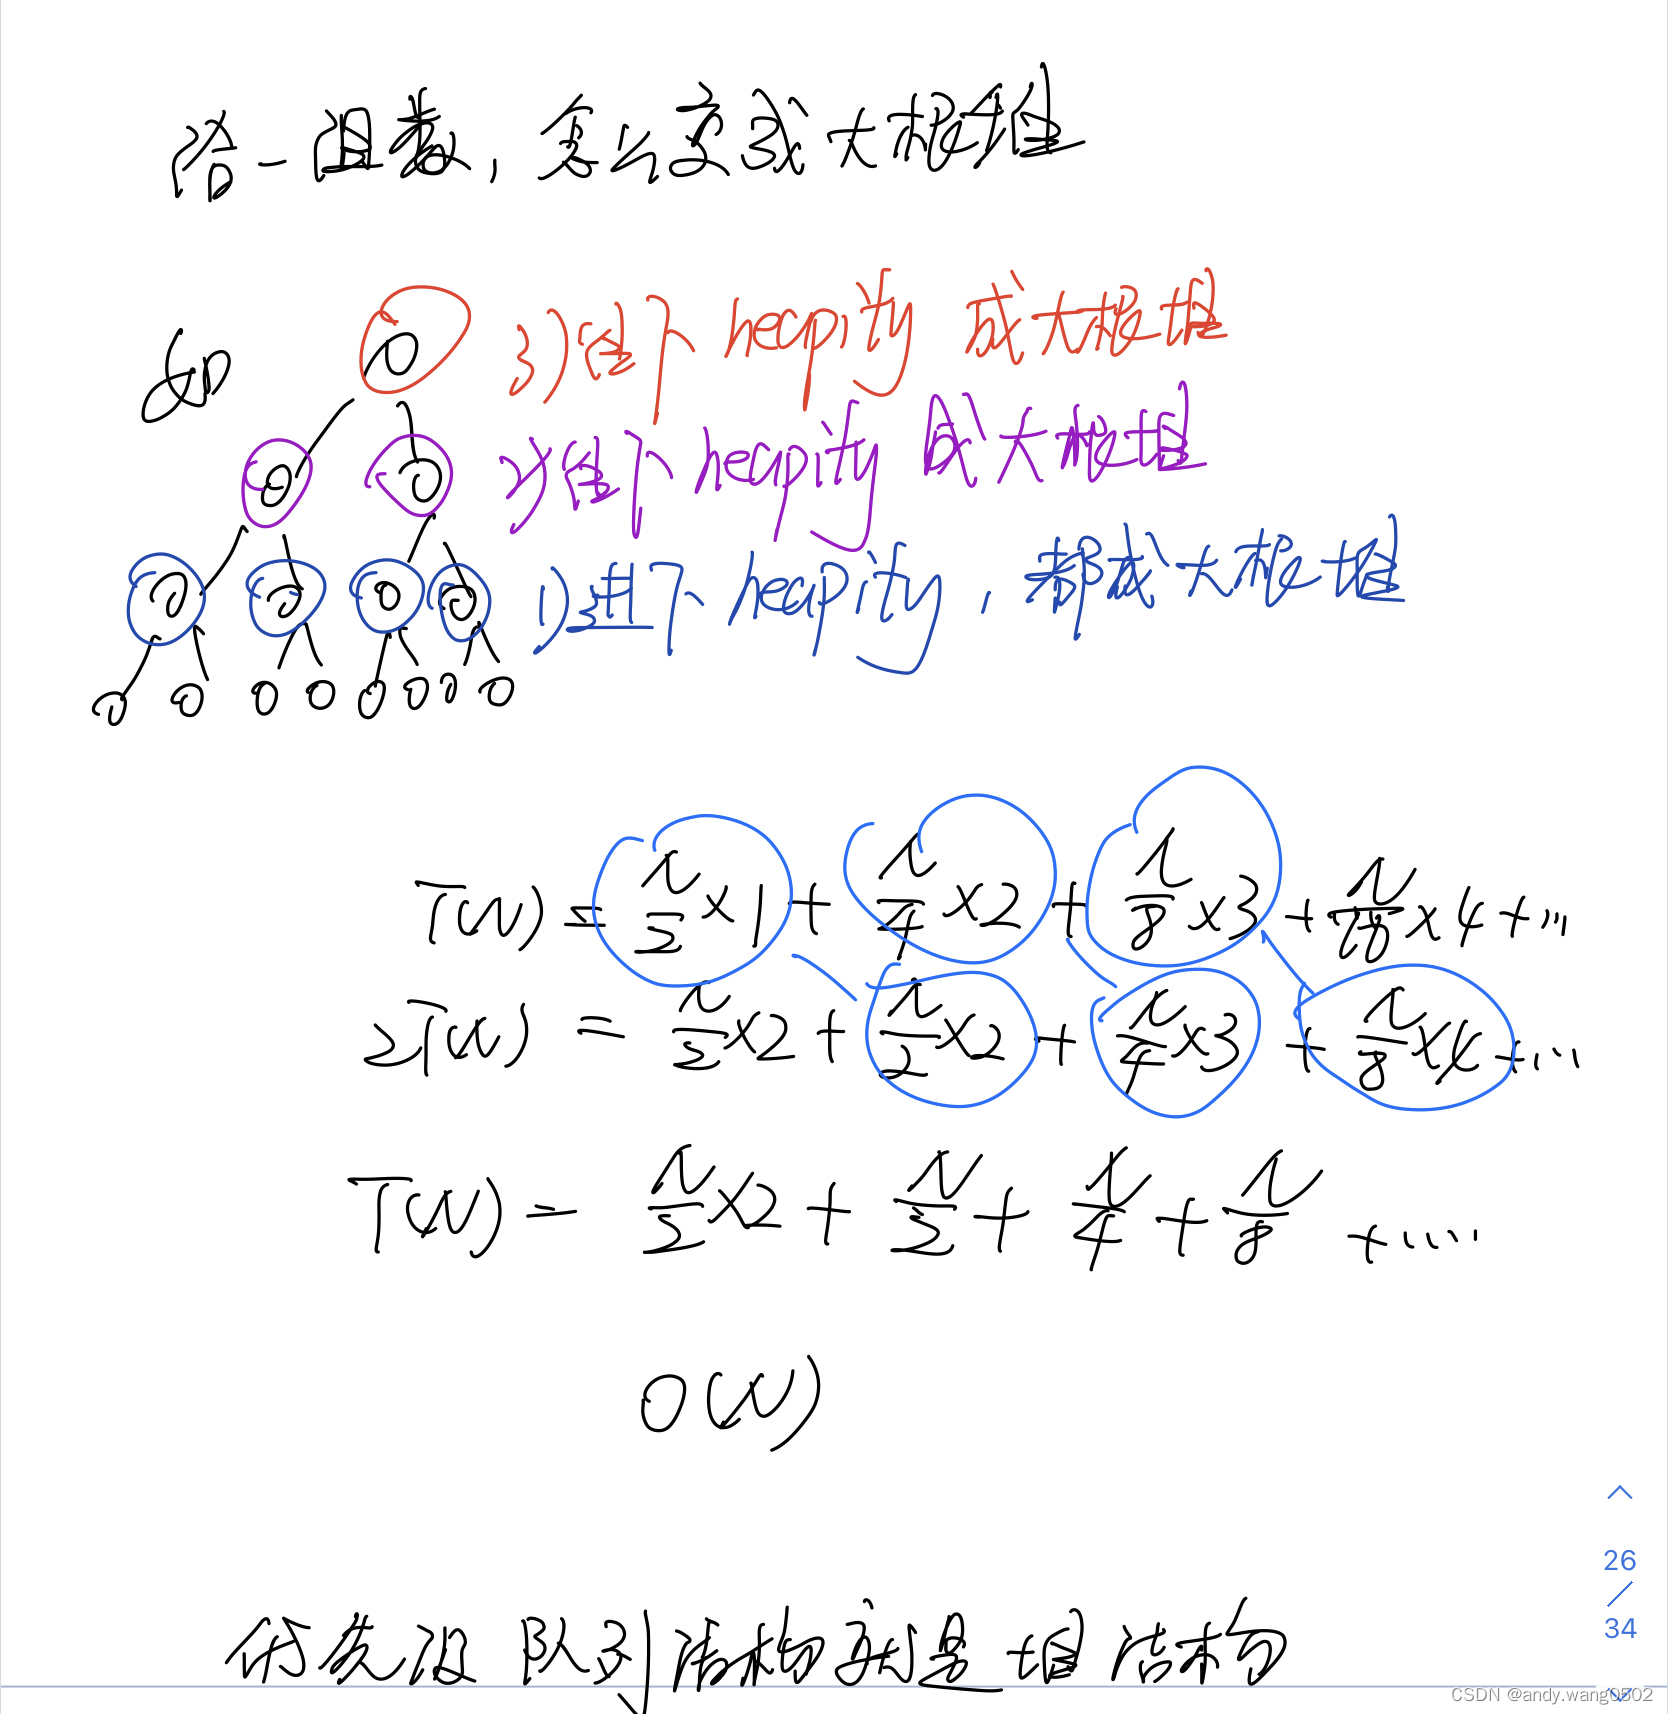 给一组数，怎么变成大根堆
如
3)往下 heapify 成大根堆
2)往下 heapify 成大根堆
1)进下 heapify，都成大根堆
T(N) = N/2 ×1 + N/4 ×2 + N/8 ×3 + N/16 ×4 + ...
2T(N) = N/2 ×2 + N/2 ×2 + N/4 ×3 + N/8 ×4 + ...
T(N) = N/2 ×2 + N/2 + N/4 + N/8 + .....
O(N)
优先级队列结构就是堆结构
26
/
34
CSDN @andy.wang0502